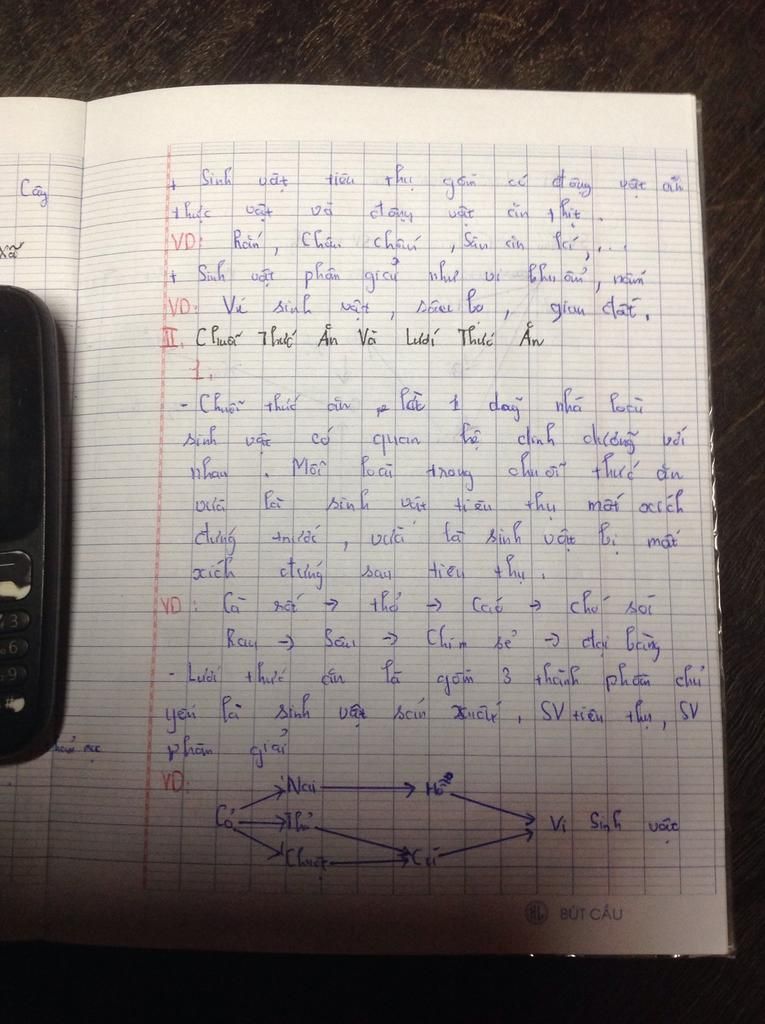 Cây
+ Sinh vật tiêu thụ gồm có động vật ăn
thực vật và động vật ăn thịt.
VD: Rắn, Châu chấu, Sâu ăn lá,...
+ Sinh vật phân giải như vi khuẩn, nấm
VD: Vi sinh vật, sâu bọ, giun đất.
II. Chuỗi Thức Ăn Và Lưới Thức Ăn
1.
- Chuỗi thức ăn là 1 dãy nhá loài
sinh vật có quan hệ dinh dưỡng với
nhau. Mỗi loài trong chuỗi thức ăn
vừa là sinh vật tiêu thụ mắt xích
đứng trước, vừa là sinh vật bị mắt
xích đứng sau tiêu thụ.
VD: Cà rốt → thỏ → Cáo → chó sói
Rau → Sâu → Chim sẻ → đại bàng
- Lưới thức ăn là gồm 3 thành phần chủ
yếu là sinh vật sản xuất, SV tiêu thụ, SV
phân giải
VD:
Nai → Hổ
Cỏ Thỏ Vi Sinh vật
Chuột → Cú
BÚT CẦU